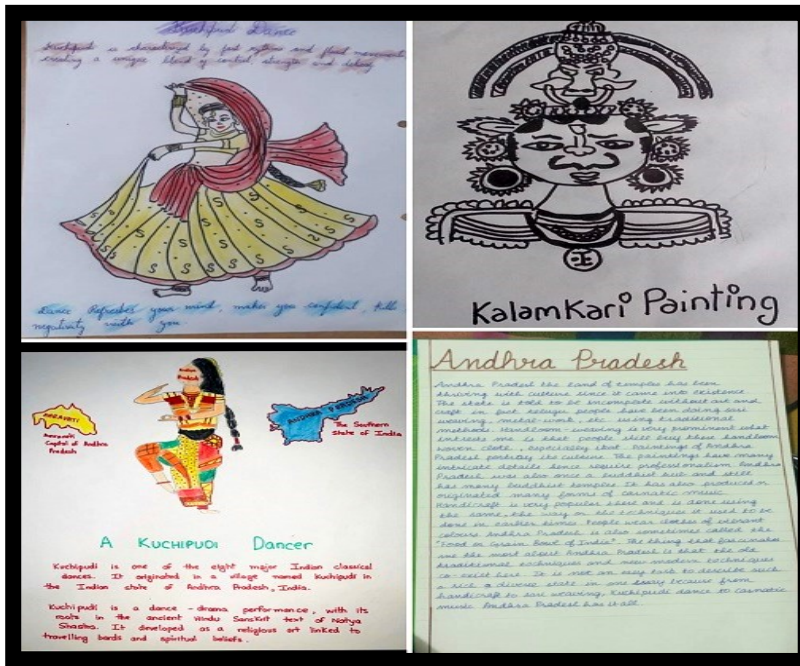 Kuchipudi Dance
Kuchipudi is characterized by fast rythms and fluid movements,
creating a unique blend of control, strength and delicacy
Dance Refreshes your mind, makes you confident, kills
negativity with you
Kalamkari Painting
Andhra
Pradesh
AMRAVATI
Amravati
Capital of Andhra
Pradesh
ANDHRA PRADESH
The Southern
State of India
A KUCHIPUDI Dancer
Kuchipudi is one of the eight major Indian classical
dances. It originated in a village named Kuchipudi in
the Indian state of Andhra Pradesh, India.
Kuchipudi is a dance-drama performance, with its
roots in the ancient Hindu Sanskrit text of Natya
Shastra. It developed as a religious art linked to
travelling bards and spiritual beliefs.
Andhra Pradesh
Andhra Pradesh the land of temples has been
thriving with culture since it came into existence.
The state is told to be incomplete without art and
craft in fact telugu people have been doing sari
weaving, metal work, etc using traditional
methods. Handloom weaving is very prominent what
intrests me is that people still buy these handloom
woven cloth, especially that Paintings of Andhra
Pradesh symbolize its culture. The paintings have many
intricate details hence require professionalism. Andhra
Pradesh was also once a buddhist hub and still
has many buddhist temples. It has also produced n
originated many forms of carnatic music
Handicraft is very popular there and is done using
the same, the way or the techniques it used to be
done in earlier times. People wear clothes of vibrant
colours. Andhra Pradesh is also sometimes called the
"Food or Grain Bowl of India". The thing that fascinates
me the most about Andhra Pradesh is that the old
traditional techniques and new modern techniques
co-exist here. It is not an easy task to describe such
a rich n diverse state in one essay because from
handicraft to sari weaving, Kuchipudi dance to carnatic
music Andhra Pradesh has it all